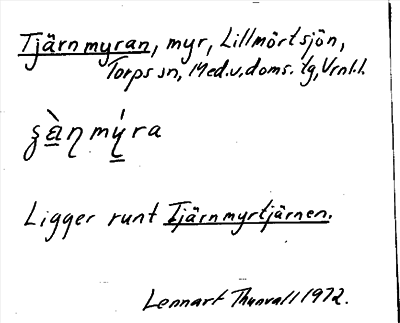 Tjärnmyran, myr, Lillmörtsjön,
Torps sn, Med.v.doms. tg, Vrnl.l.
ʂàɳmýra
Ligger runt Tjärnmyrtjärnen.
Lennart Thunvall 1972.